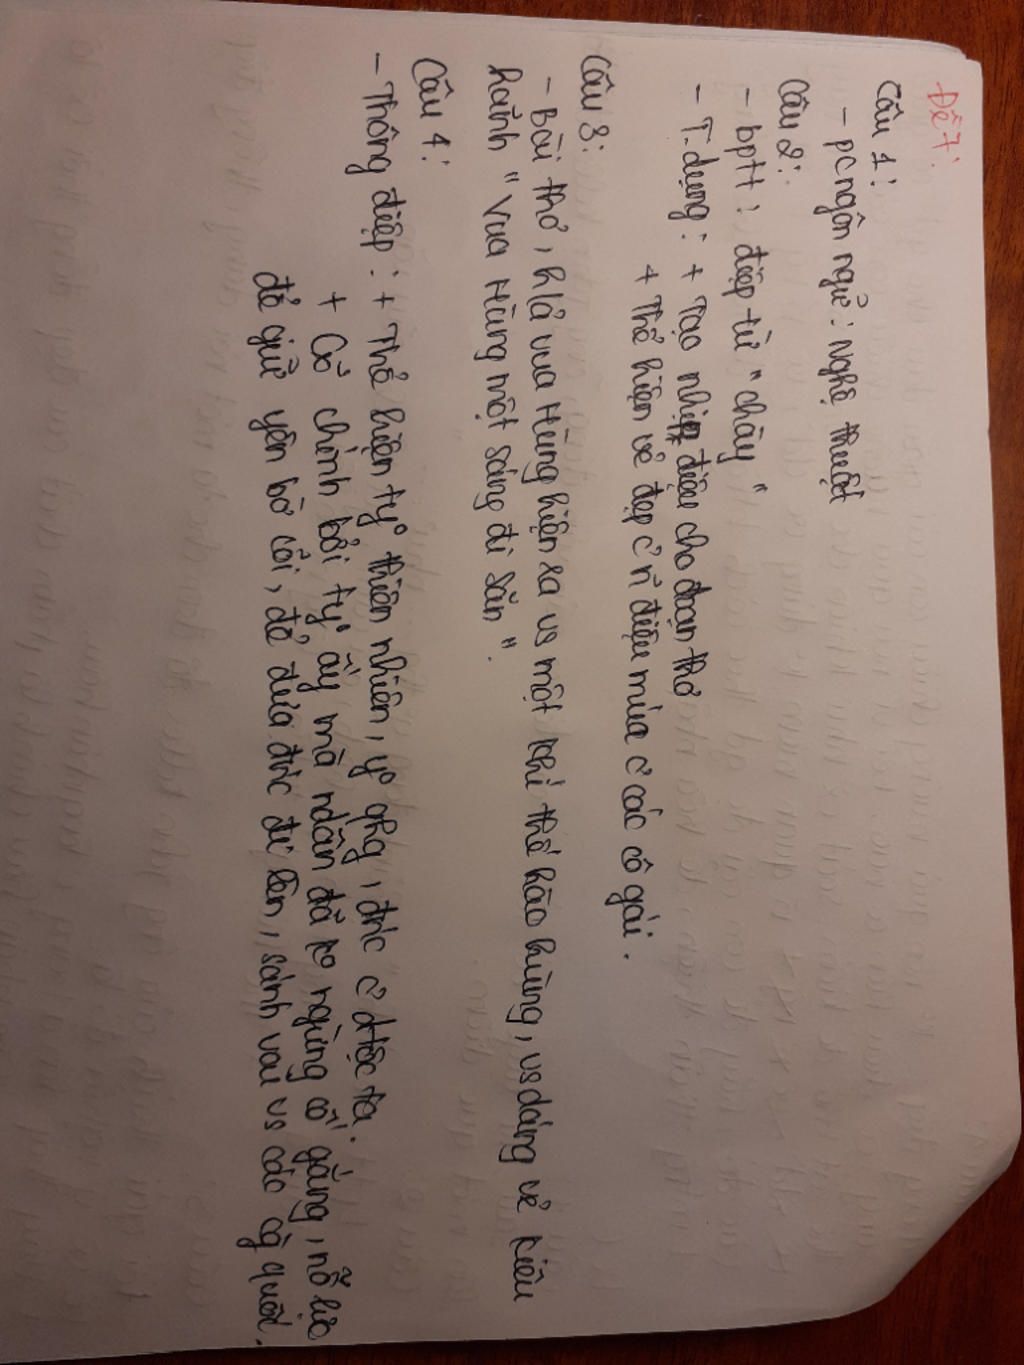 Đề 7:
Câu 1:
- pc ngôn ngữ: Nghệ thuật
Câu 2:
- bptt: điệp từ "chày"
- T.dụng: + Tạo nhịp điệu cho đoạn thơ
+ Thể hiện vẻ đẹp c̉ n~ điệu múa c̉ các cô gái.
Câu 3:
- Bài thơ, h/ả vua Hùng hiện ra vs một khí thế hào hùng, vs dáng vẻ kiêu
hãnh "Vua Hùng một sáng đi săn".
Câu 4:
- Thông điệp: + Thể hiện ty° thiên nhiên, y° qhg, đnc c̉ dtộc ta.
+ Có chính bởi ty° ấy mà ndân đã ko ngừng cố gắng, nỗ lực
để giữ yên bờ cõi, để đưa đnc đi lên, sánh vai vs các cg quốc.